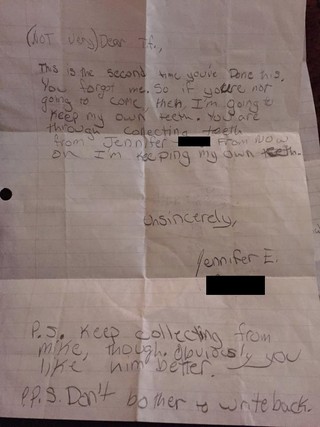 (Not very) Dear T.F.,
This is the second time you've Done this.
You forgot me. So if you're not
going to come then, I'm going to
keep my own teeth. You are
through collecting teeth
from Jennifer From now
on I'm keeping my own teeth.
Unsincerely,
Jennifer E.
P.S. Keep collecting from
mike, though. Obviously you
like him better.
P.P.S. Don't bother to write back.